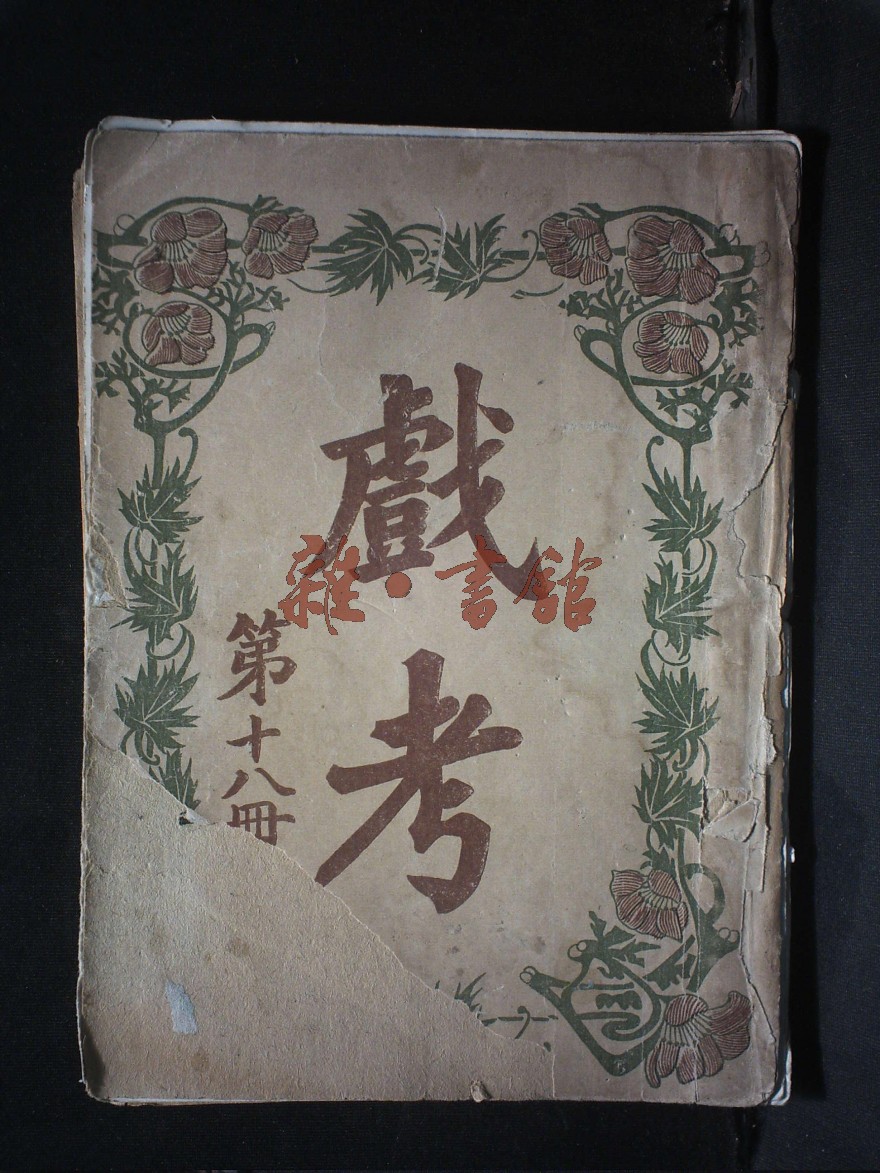 戲考
第十八冊
雜·書館